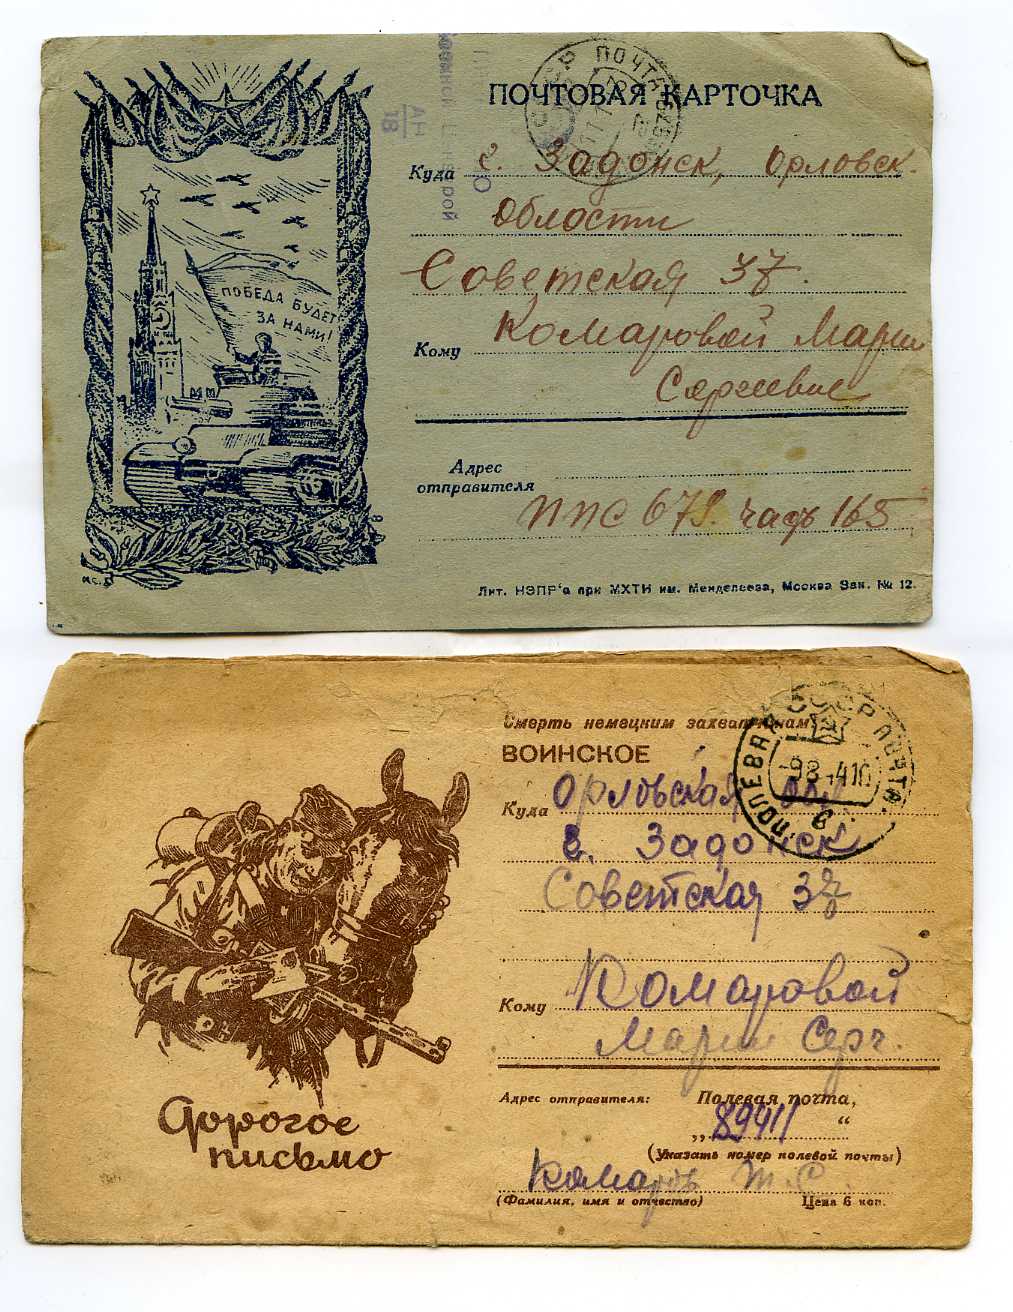 ПОЧТОВАЯ КАРТОЧКА
СССР ПОЧТА
АН
18
ПОБЕДА БУДЕТ
ЗА НАМИ!
Куда г. Задонск, Орловск.
области
Советская 37.
Кому Комаровой Марии
Сергеевне
Адрес
отправителя
ППС 679. часть 165
Лит. НЭПР'а при МХТИ им. Менделеева, Москва Зак. № 12.
Смерть немецким захватчикам
ВОИНСКОЕ
СССР ПОЛЕВАЯ ПОЧТА
Куда Орловская обл
г. Задонск
Советская 37
Кому Комаровой
Марии Серг.
Адрес отправителя: Полевая почта,
„ 89411 “
(Указать номер полевой почты)
Комаров Т. С.
(Фамилия, имя и отчество) Цена 6 коп.
Дорогое
письмо